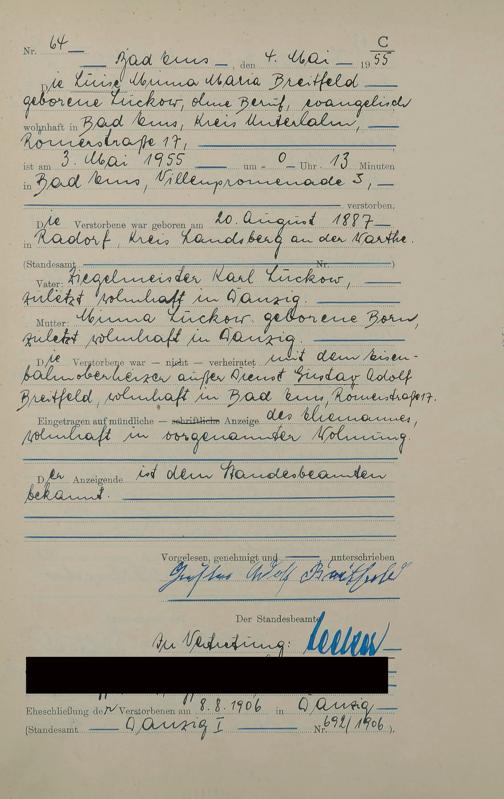 C
Nr. 64
Bad Ems, den 4. Mai 1955
Die Luise Minna Maria Breitfeld
geborene Lückow, ohne Beruf, evangelisch
wohnhaft in Bad Ems, Kreis Unterlahn,
Römerstraße 17,
ist am 3. Mai 1955 um 0 Uhr 13 Minuten
in Bad Ems, Villenpromenade 3,
verstorben.
Die Verstorbene war geboren am 20. August 1887
in Radorf, Kreis Landsberg an der Warthe.
(Standesamt Nr. )
Vater: Ziegelmeister Karl Lückow,
zuletzt wohnhaft in Danzig.
Mutter: Minna Lückow geborene Born,
zuletzt wohnhaft in Danzig.
Die Verstorbene war — nicht — verheiratet mit dem Eisen-
bahnoberheizer außer Dienst Gustav Adolf
Breitfeld, wohnhaft in Bad Ems, Römerstraße 17.
Eingetragen auf mündliche — schriftliche Anzeige des Ehemannes,
wohnhaft in vorgenannter Wohnung.
Der Anzeigende ist dem Standesbeamten
bekannt.
Vorgelesen, genehmigt und unterschrieben
Gustav Adolf Breitfeld
Der Standesbeamte
In Vertretung:
Eheschließung der Verstorbenen am 8.8.1906 in Danzig
(Standesamt Danzig I Nr. 692/1906 ).